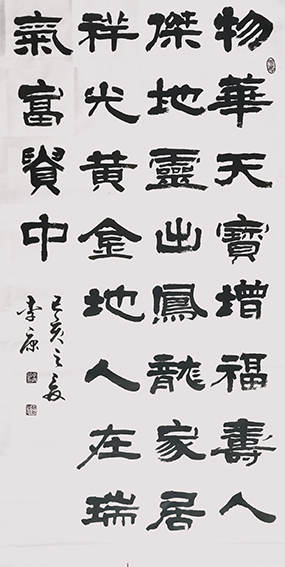 物華天寶增福壽人
傑地靈出鳳龍家居
祥光黄金地人在瑞
氣富貴中
己亥之夏
李康